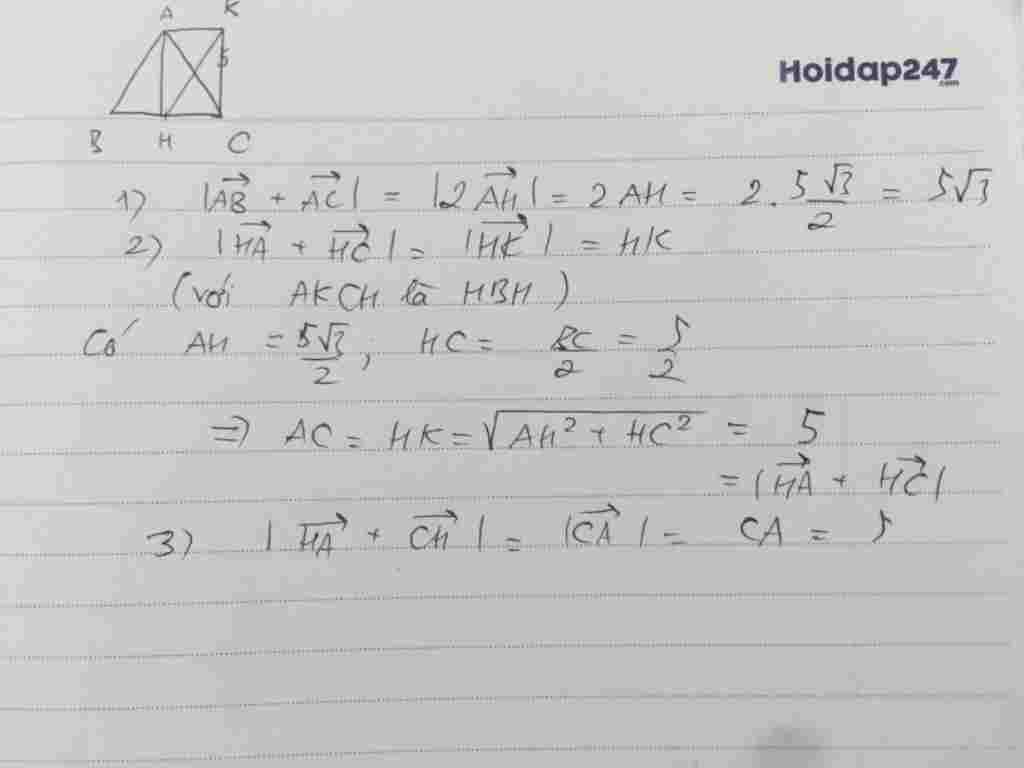 A K
5
Hoidap247
.com
B H C
1) |$\overrightarrow{AB}$ + $\overrightarrow{AC}$| = |2$\overrightarrow{AH}$| = 2AH = 2 . $\frac{5\sqrt{3}}{2}$ = 5√3
2) |$\overrightarrow{HA}$ + $\overrightarrow{HC}$| = |$\overrightarrow{HK}$| = HK
(với AKCH là HBH)
Có AH = $\frac{5\sqrt{3}}{2}$ ; HC = $\frac{BC}{2}$ = $\frac{5}{2}$
=> AC = HK = $\sqrt{AH^2 + HC^2}$ = 5
= |$\overrightarrow{HA}$ + $\overrightarrow{HC}$|
3) |$\overrightarrow{HA}$ + $\overrightarrow{CH}$| = |$\overrightarrow{CA}$| = CA = 5